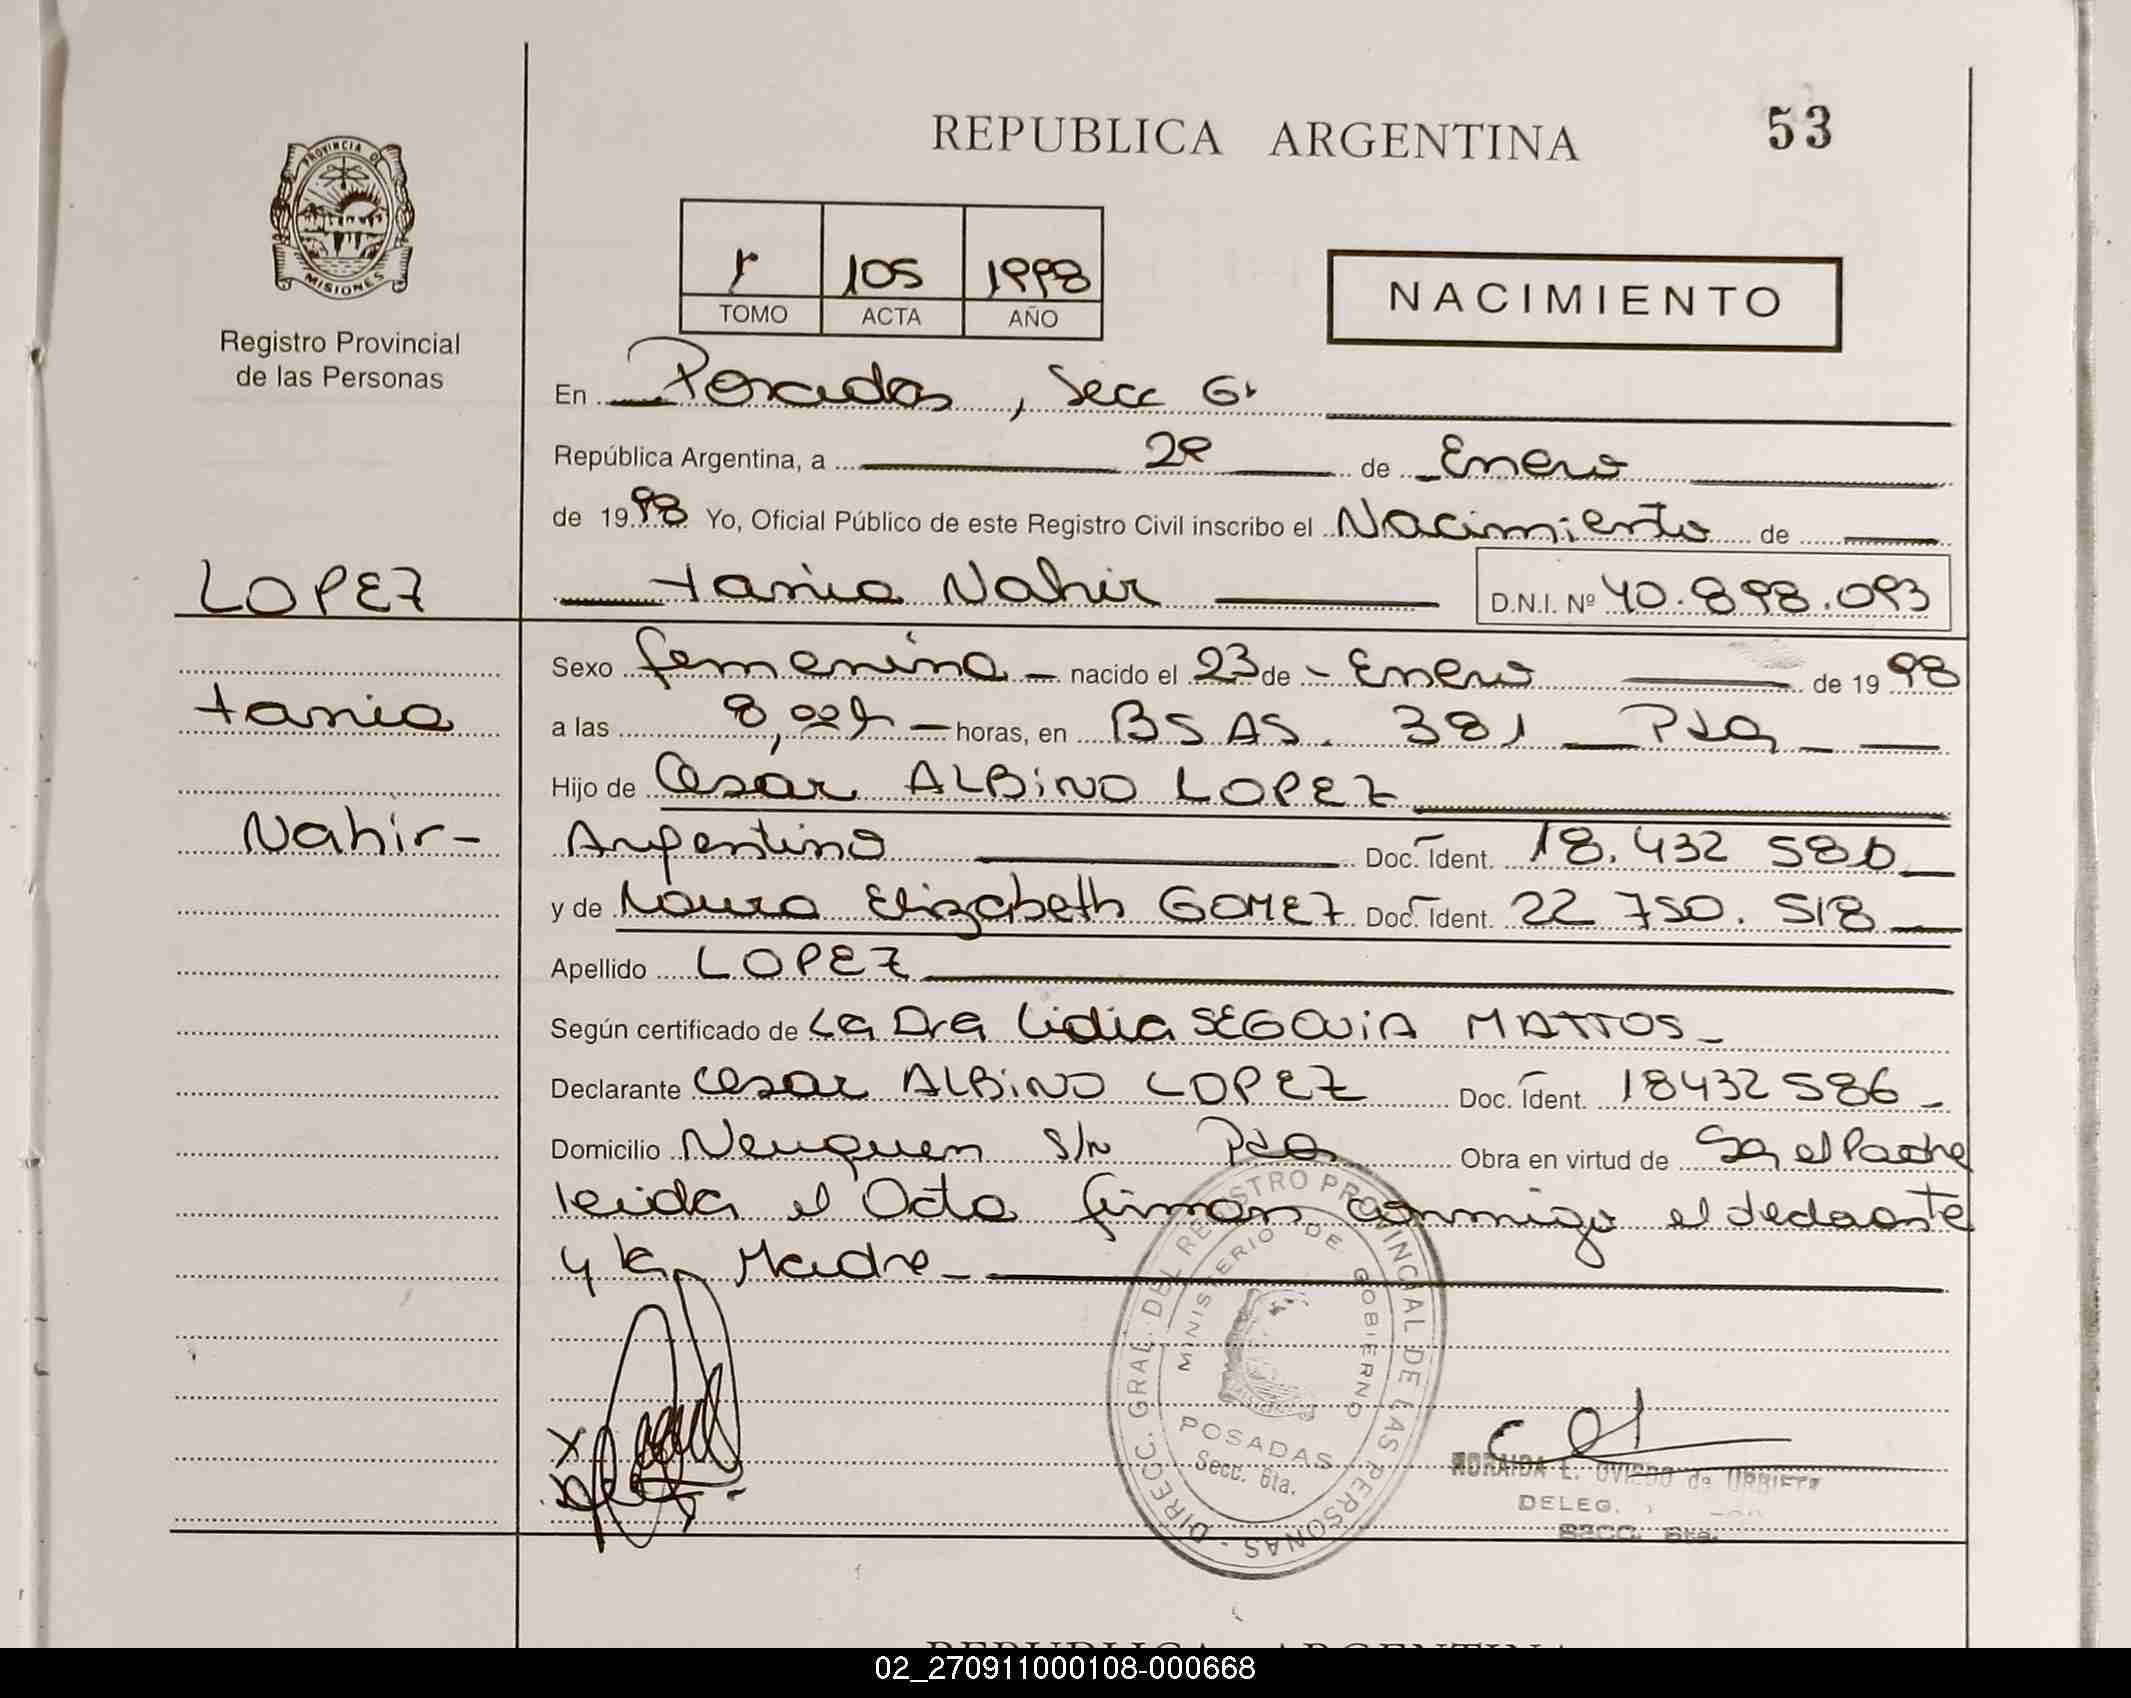 53
REPUBLICA ARGENTINA
PROVINCIA DE MISIONES
Registro Provincial
de las Personas
105 1998
TOMO ACTA AÑO
NACIMIENTO
En Posadas, Secc 6ª
República Argentina, a 29 de Enero
de 1998 Yo, Oficial Público de este Registro Civil inscribo el Nacimiento de
LOPEZ
Tania Nahir D.N.I. Nº 40.898.093
Sexo femenino nacido el 23 de Enero de 1998
Tania
a las 8, horas, en BS AS. 381 Pdas
Hijo de Cesar ALBiNO LOPEZ
Nahir-
Argentino Doc. Ident. 18.432 586
y de Elizabeth GOMEZ Doc. Ident. 22 750. 518
Apellido LOPEZ
Según certificado de La Dra Lidia SEGOViA MATTOS
Declarante Cesar ALBiNO LOPEZ Doc. Ident. 18432 586
Domicilio Neuquen S/N Pdas Obra en virtud de Ser el Padre
leida el Acta firman conmigo el declarante
y la Madre
DIRECC. GRAL. DEL REGISTRO PROVINCIAL DE LAS PERSONAS
MINISTERIO DE GOBIERNO
POSADAS
Secc. 6ta.
X
L. OVIEDO de URBIETA
DELEG.
SECC. 6ta.
REPUBLICA ARGENTINA
02_270911000108-000668